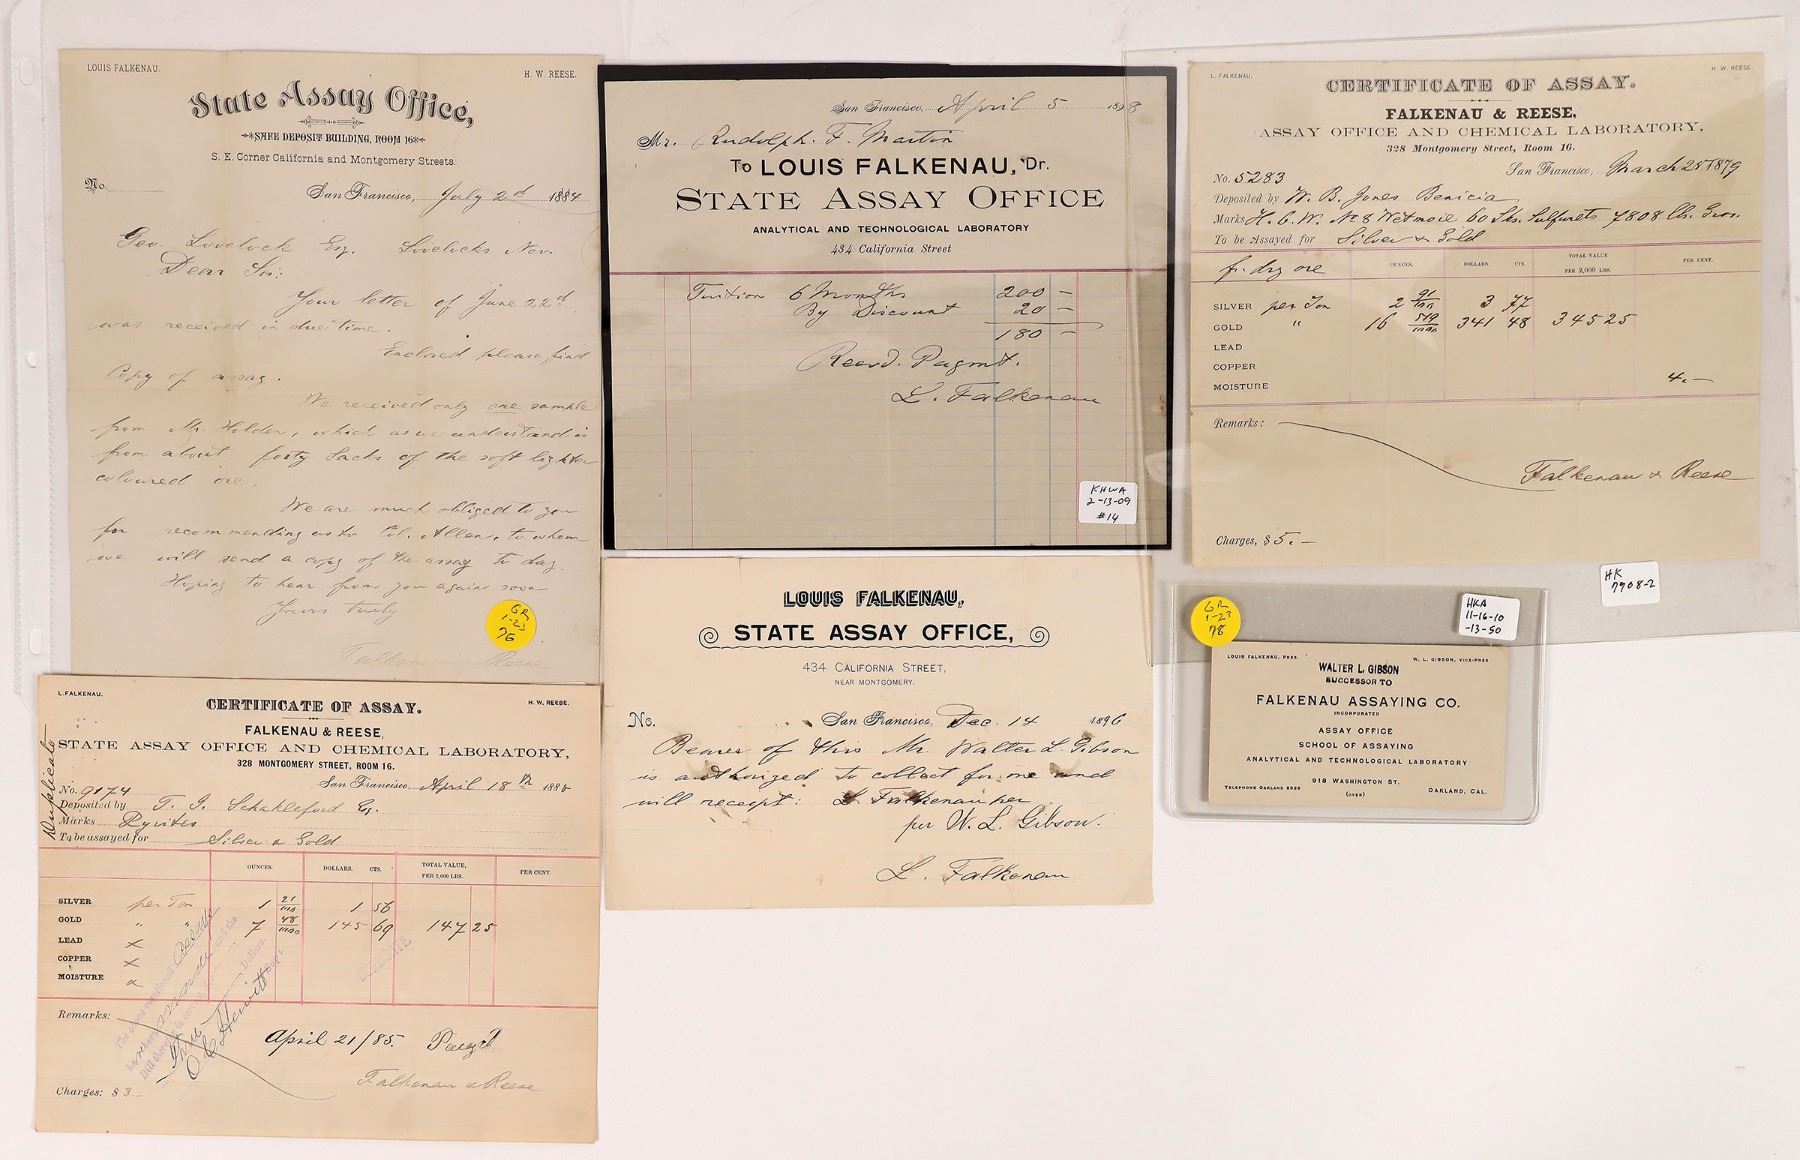 LOUIS FALKENAU.
H. W. REESE.
State Assay Office,
SAFE DEPOSIT BUILDING, ROOM 16
S. E. Corner California and Montgomery Streets.
No.
San Francisco, July 2d 1884
Geo. Lovelock Esq. Lovelocks Nev.
Dear Sir:
Your letter of June 22d
was received in due time.
Enclosed please find
Copy of assay.
We received only one sample
from Mr. Holder, which as we understand is
from about forty Sacks of the soft lighter
coloured ore.
We are much obliged to you
for recommending us to Col. Allen, to whom
we will send a copy of the assay to day.
Hoping to hear from you again soon
Yours truly
Falkenau & Reese
GR
1-23
76
San Francisco, April 5 1898
Mr. Rudolph. F. Martin
To LOUIS FALKENAU, Dr.
STATE ASSAY OFFICE
ANALYTICAL AND TECHNOLOGICAL LABORATORY
434 California Street
Tuition 6 Months 200 –
By Discount 20 –
180 –
Recvd. Paymt.
L. Falkenau
KHWA
2-13-09
#14
L. FALKENAU.
H. W. REESE.
CERTIFICATE OF ASSAY.
FALKENAU & REESE,
ASSAY OFFICE AND CHEMICAL LABORATORY,
328 Montgomery Street, Room 16.
San Francisco, March 25 1879
No. 5283
Deposited by W. B. Jones Benicia
Marks H. C. W. No 8 Wetmore 60 Sks. Sulfurets 7808 lbs. Gross.
To be Assayed for Silver & Gold
fr. dry ore
OUNCES. DOLLARS. CTS. TOTAL VALUE PER 2,000 LBS. PER CENT.
SILVER per Ton 2 91/100 3 77
GOLD " 16 519/1000 341 48 345 25
LEAD
COPPER
MOISTURE 4. –
Remarks:
Falkenau & Reese
Charges, $ 5. –
HK
7908-2
L. FALKENAU.
H. W. REESE.
CERTIFICATE OF ASSAY.
FALKENAU & REESE,
STATE ASSAY OFFICE AND CHEMICAL LABORATORY,
328 MONTGOMERY STREET, ROOM 16.
San Francisco, April 18th 1885
Duplicate
No. 9174
Deposited by T. J. Schakleford Esq.
Marks Pyrites
To be assayed for Silver & Gold
OUNCES. DOLLARS. CTS. TOTAL VALUE, PER 2,000 LBS. PER CENT.
SILVER per Ton 1 21/100 1 56
GOLD " " 7 48/1000 145 69 147 25
LEAD x
COPPER x
MOISTURE x
Remarks:
April 21/85. Pay't
Falkenau & Reese
Charges: $ 3 –
LOUIS FALKENAU,
STATE ASSAY OFFICE,
434 CALIFORNIA STREET,
NEAR MONTGOMERY.
No.
San Francisco, Dec. 14 1896
Bearer of this Mr. Walter L. Gibson
is authorized to collect for me and
will receipt: L. Falkenau per
per W. L. Gibson.
L. Falkenau
GR
1-23
78
HKA
11-16-10
-13-50
LOUIS FALKENAU, PRES.
W. L. GIBSON, VICE-PRES.
WALTER L. GIBSON
SUCCESSOR TO
FALKENAU ASSAYING CO.
INCORPORATED
ASSAY OFFICE
SCHOOL OF ASSAYING
ANALYTICAL AND TECHNOLOGICAL LABORATORY
918 WASHINGTON ST.
TELEPHONE OAKLAND 8929
(OVER)
OAKLAND, CAL.